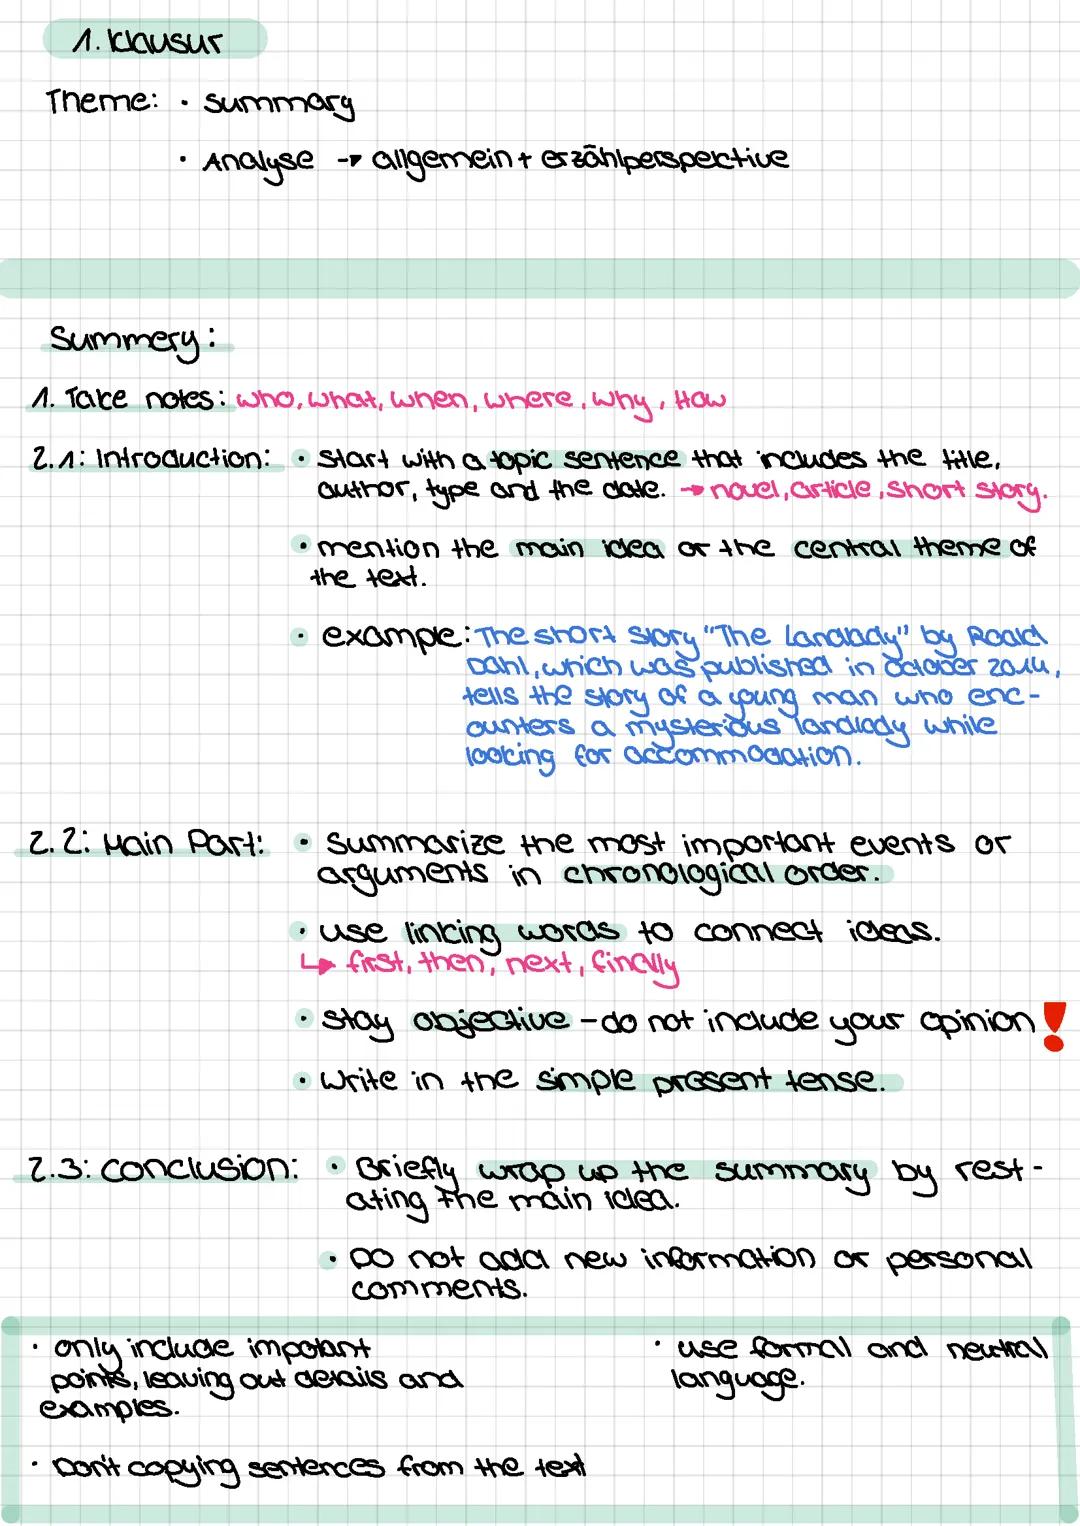 1. Klausur
Theme: • summary
• Analyse → allgemein + erzählperspektive
Summery:
1. Take notes: who, what, when, where, why, How
2.1: Introduction: • Start with a topic sentence that includes the title,
author, type and the date. → novel, article, short story.
• mention the main idea or the central theme of
the text.
• example: The short story "The Landlady" by Roald
Dahl, which was published in October 2014,
tells the story of a young man who enc-
ounters a mysterious landlady while
looking for accommodation.
2.2: Main Part: • Summarize the most important events or
arguments in chronological order.
• use linking words to connect ideas.
↳ first, then, next, finally
• stay objective - do not include your opinion❗
• Write in the simple present tense.
2.3: Conclusion: • Briefly wrap up the summary by rest-
ating the main idea.
• Do not add new information or personal
comments.
• only include impotant
points, leaving out details and
examples.
• use formal and neutral
language.
• Don't copying sentences from the text